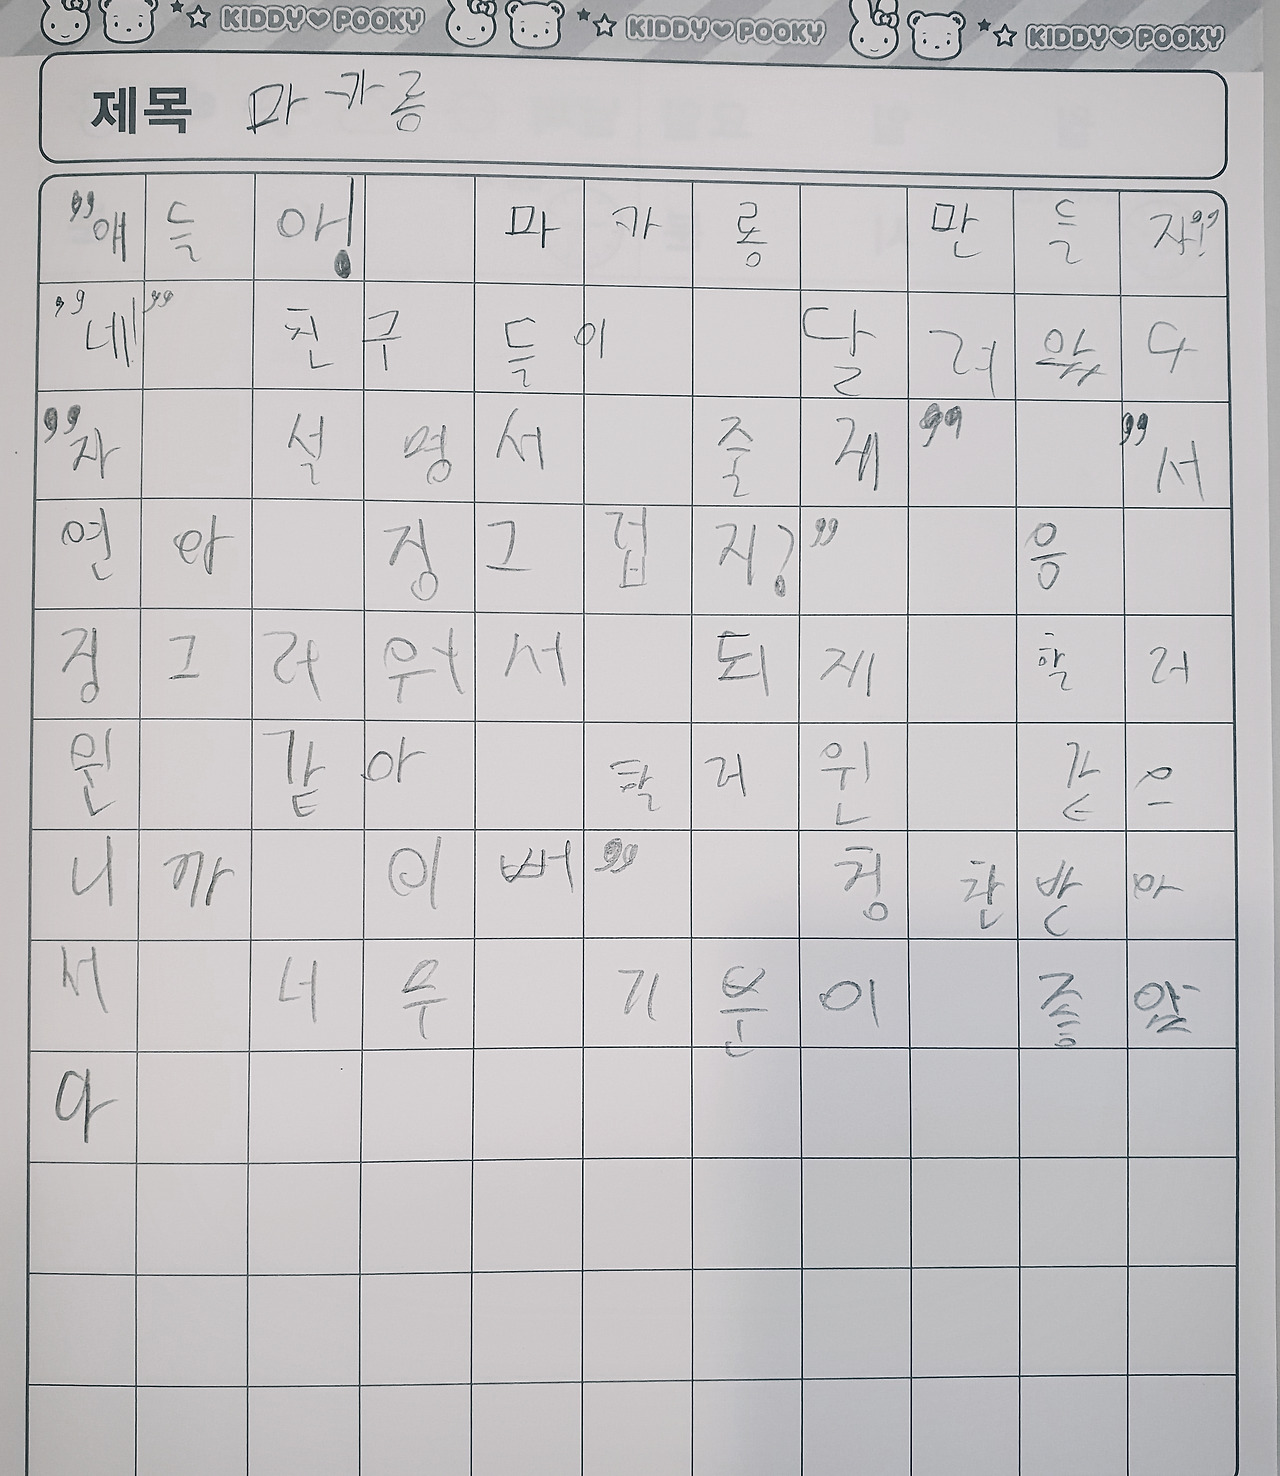 KIDDY♥POOKY KIDDY♥POOKY KIDDY♥POOKY
제목 마카롱
"애들아! 마카롱 만들자!"
"네!" 친구들이 달려왔다
"자 설명서 줄게" "서
연아 징그럽지?" 응
징그러워서 되게 할러
윈 같아 할러윈 같으
니까 이뻐" 칭찬받아
서 너무 기분이 좋았
다